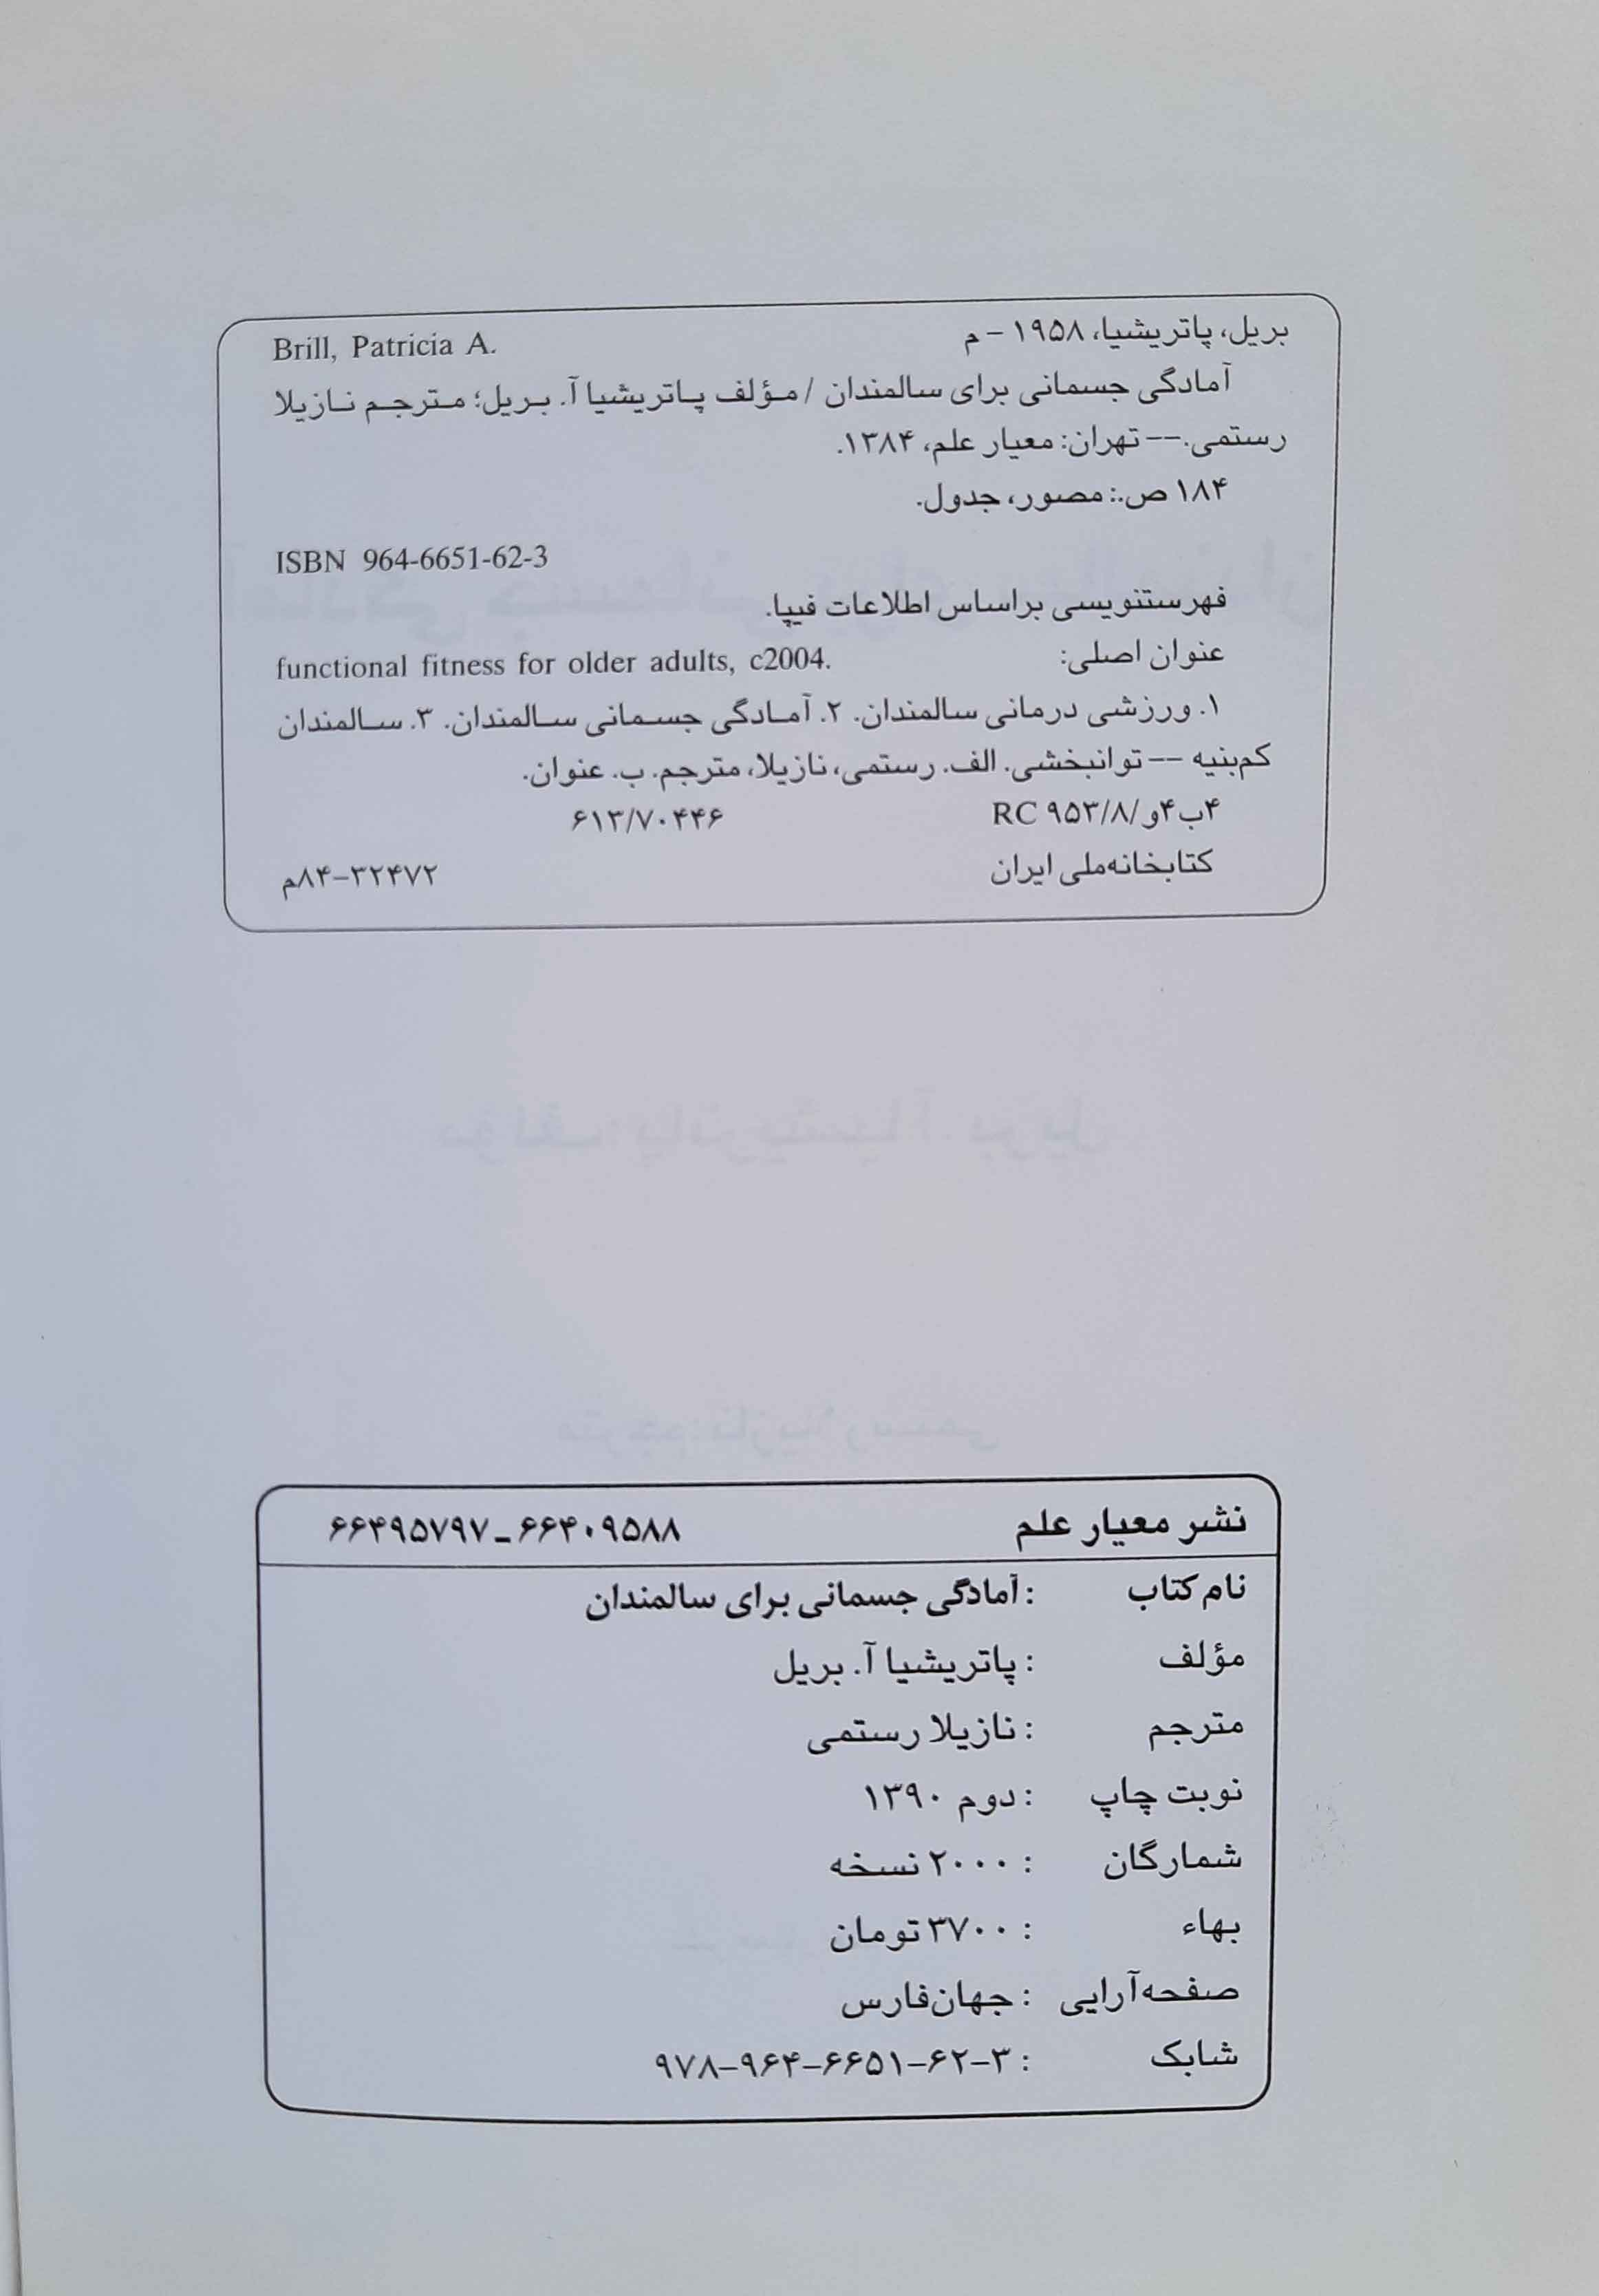 بریل، پاتریشیا، ۱۹۵۸ - م Brill, Patricia A.
آمادگی جسمانی برای سالمندان / مؤلف پاتریشیا آ. بریل؛ مترجم نازیلا
رستمی.-- تهران: معیار علم، ۱۳۸۴.
۱۸۴ ص.: مصور، جدول.
ISBN 964-6651-62-3
فهرستنویسی براساس اطلاعات فیپا.
عنوان اصلی: functional fitness for older adults, c2004.
۱. ورزشی درمانی سالمندان. ۲. آمادگی جسمانی سالمندان. ۳. سالمندان
کم‌بنیه -- توانبخشی. الف. رستمی، نازیلا، مترجم. ب. عنوان.
۴ب۴و/۸/RC ۹۵۳ ۶۱۳/۷۰۴۴۶
کتابخانه‌ملی ایران ۸۴-۳۲۴۷۲م
نشر معیار علم ۶۶۴۰۹۵۸۸ ـ ۶۶۴۹۵۷۹۷
نام کتاب : آمادگی جسمانی برای سالمندان
مؤلف : پاتریشیا آ. بریل
مترجم : نازیلا رستمی
نوبت چاپ : دوم ۱۳۹۰
شمارگان : ۲۰۰۰ نسخه
بهاء : ۳۷۰۰ تومان
صفحه‌آرایی : جهان‌فارس
شابک : ۹۷۸-۹۶۴-۶۶۵۱-۶۲-۳